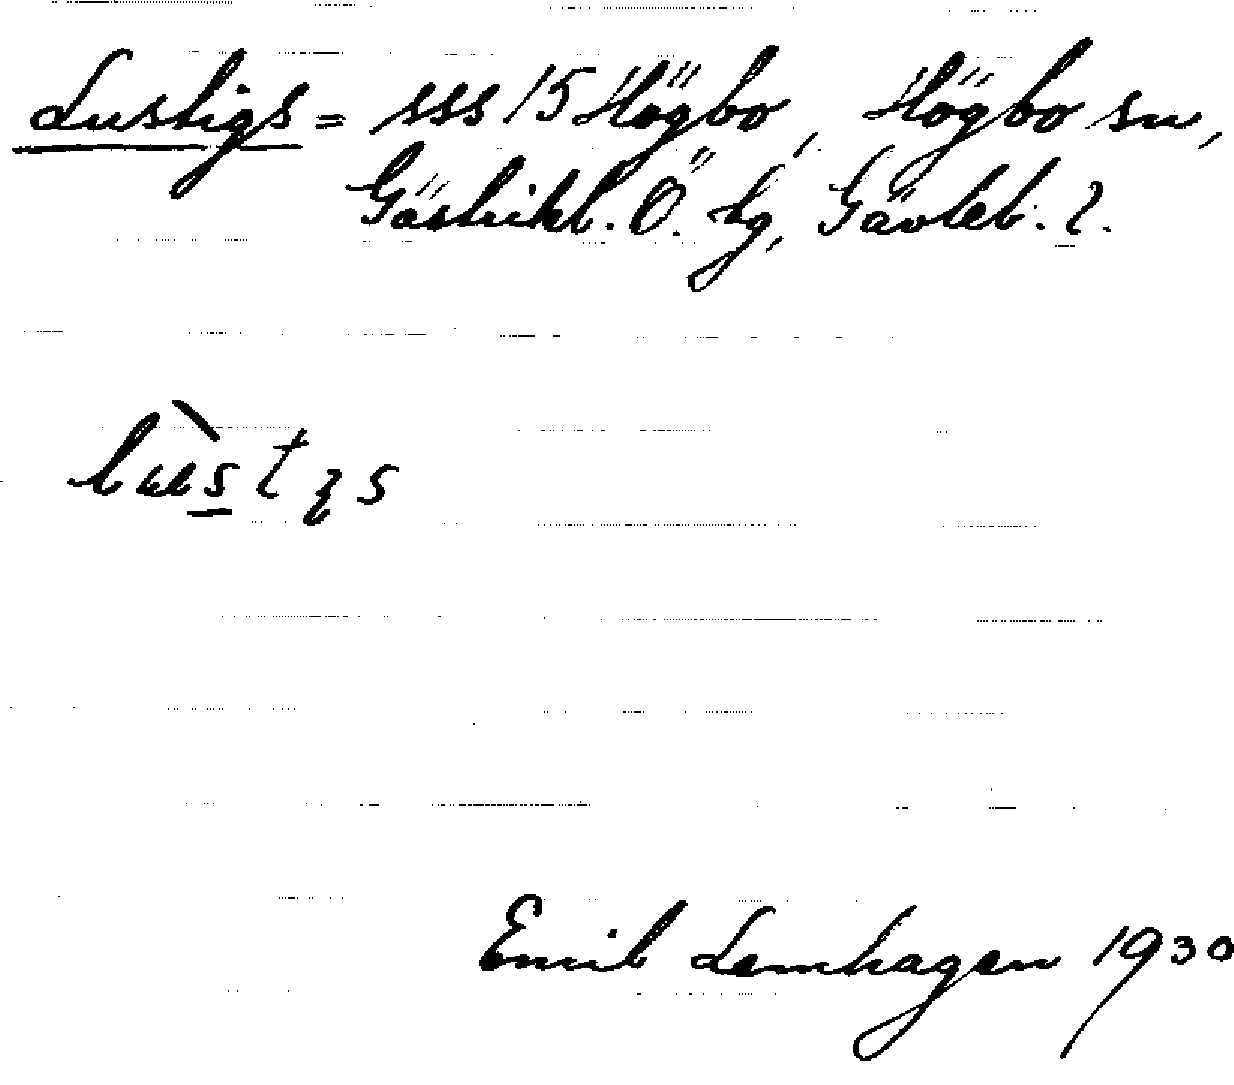 Lustigs = sss 15 Högbo, Högbo sn,
Gästrikl. Ö. tg, Gävleb. l.
Emil Lemhagen 1930